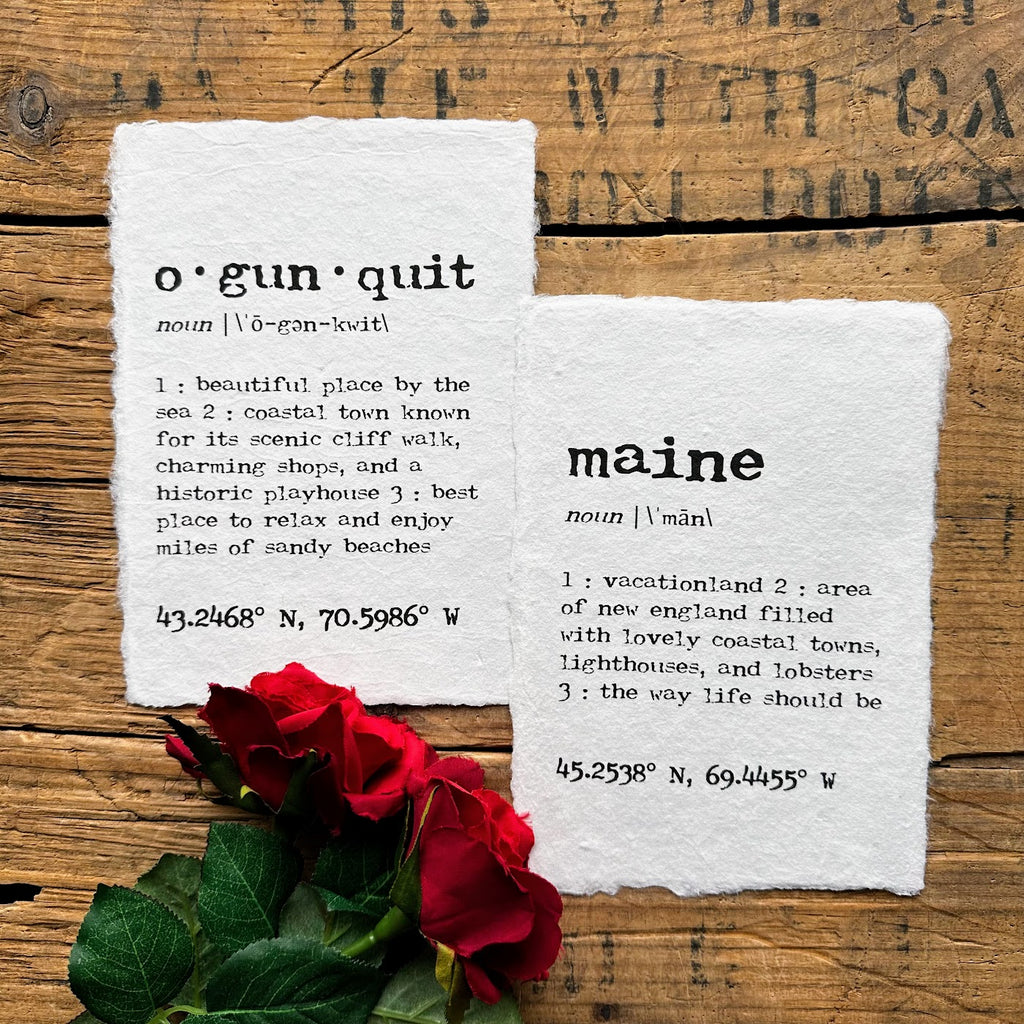 WITH
o·gun·quit
noun |\ˈō-gən-kwit\
1 : beautiful place by the
sea 2 : coastal town known
for its scenic cliff walk,
charming shops, and a
historic playhouse 3 : best
place to relax and enjoy
miles of sandy beaches
43.2468° N, 70.5986° W
maine
noun |\ˈmān\
1 : vacationland 2 : area
of new england filled
with lovely coastal towns,
lighthouses, and lobsters
3 : the way life should be
45.2538° N, 69.4455° W